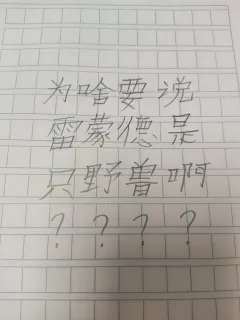 为啥要说
雷蒙德是
只野兽啊
????